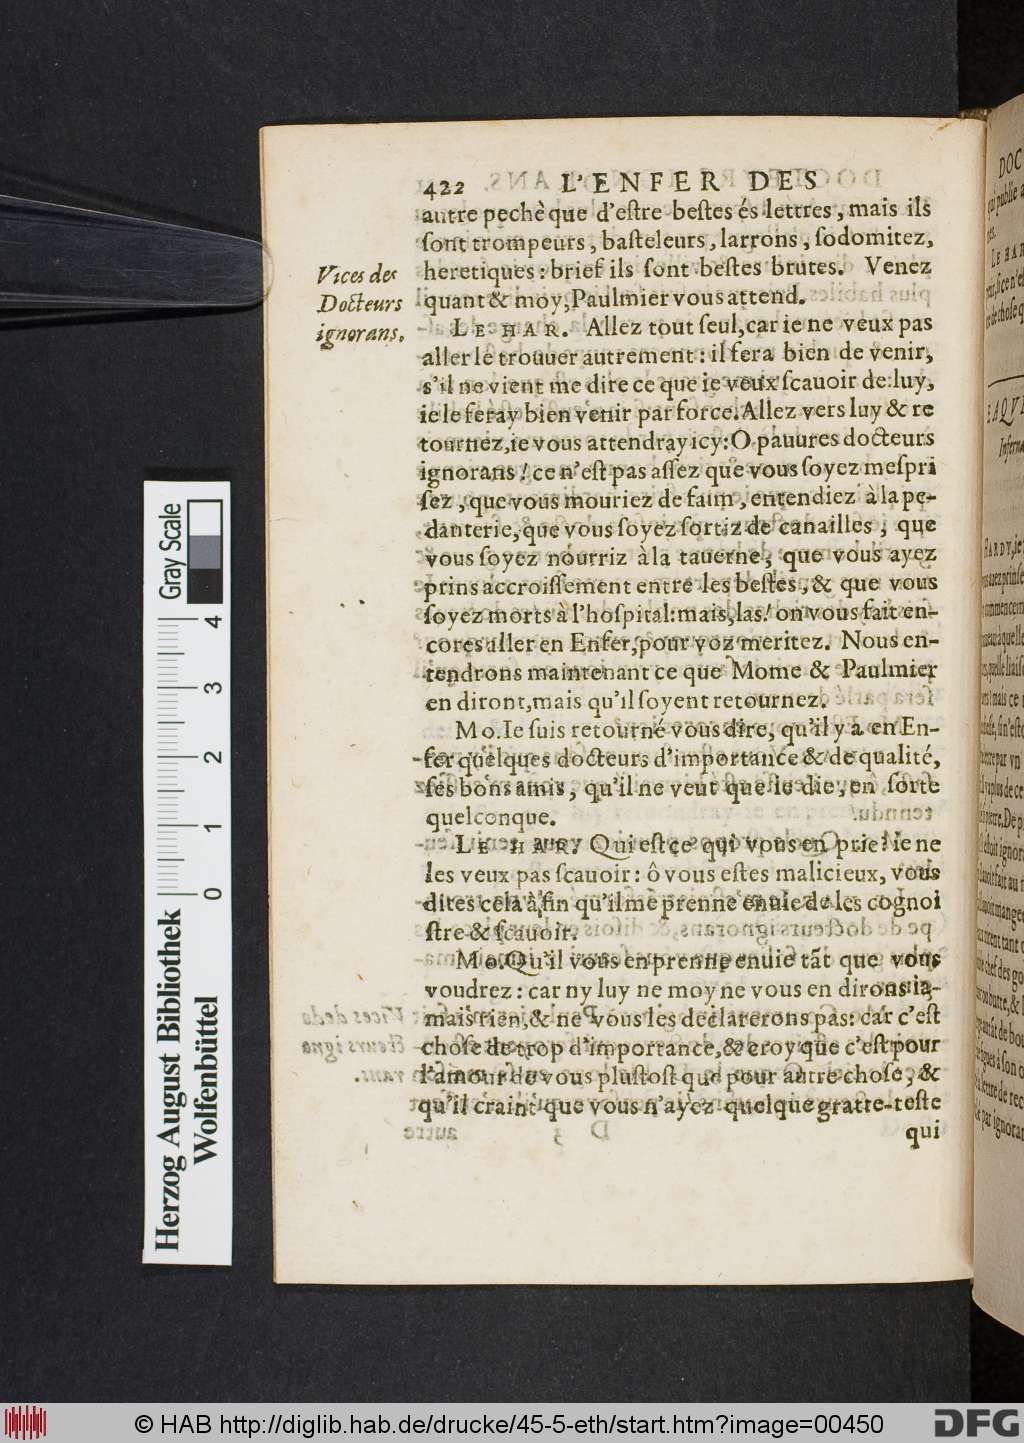 422 L'ENFER DES
autre pechè que d'eſtre beſtes és lettres, mais ils
ſont trompeurs, baſteleurs, larrons, ſodomitez,
heretiques: brief ils ſont beſtes brutes. Venez
quant & moy, Paulmier vous attend.
Vices des
Docteurs
ignorans.
LE HAR. Allez tout ſeul, car ie ne veux pas
aller le trouuer autrement: il fera bien de venir,
s'il ne vient me dire ce que ie veux ſcauoir de luy,
ie le feray bien venir par force. Allez vers luy & re
tournez, ie vous attendray icy: O pauures docteurs
ignorans! ce n'eſt pas aſſez que vous ſoyez meſpri
ſez, que vous mouriez de faim, entendiez à la pe-
danterie, que vous ſoyez ſortiz de canailles, que
vous ſoyez nourriz à la tauerne, que vous ayez
prins accroiſſement entre les beſtes, & que vous
ſoyez morts à l'hoſpital: mais, las! on vous fait en-
cores aller en Enfer, pour voz meritez. Nous en-
tendrons maintenant ce que Mome & Paulmier
en diront, mais qu'il ſoyent retournez.
Mo. Ie ſuis retourné vous dire, qu'il y a en En-
fer quelques docteurs d'importance & de qualité,
ſes bons amis, qu'il ne veut que ie die, en ſorte
quelconque.
LE HAR. Qui eſt ce qui vous en prie? ie ne
les veux pas ſcauoir: ô vous eſtes malicieux, vous
dites cela à fin qu'il me prenne enuie de les cognoi
ſtre & ſcauoir.
Mo. Qu'il vous en prenne enuie tāt que vous
voudrez: car ny luy ne moy ne vous en dirons ia-
mais rien, & ne vous les declarerons pas: car c'eſt
choſe de trop d'importance, & croy que c'eſt pour
l'amour de vous pluſtoſt que pour autre choſe, &
qu'il craint que vous n'ayez quelque gratte-teſte
qui
Gray Scale
4
3
2
1
0
Herzog August Bibliothek
Wolfenbüttel
© HAB http://diglib.hab.de/drucke/45-5-eth/start.htm?image=00450
DFG